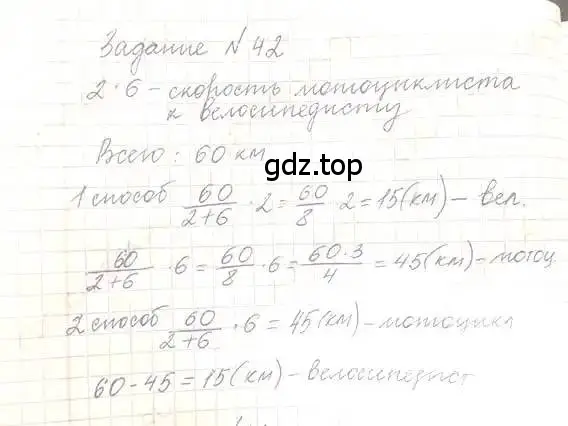 Задание № 42
2 · 6 - скорость мотоциклиста
к велосипедисту
Всего : 60 км
gdz.top
1 способ 60/(2+6) · 2 = 60/8 · 2 = 15 (км) - вел.
60/(2+6) · 6 = 60/8 · 6 = (60·3)/4 = 45 (км) - мотоц
2 способ 60/(2+6) · 6 = 45 (км) - мотоцикл
60 - 45 = 15 (км) - велосипедист